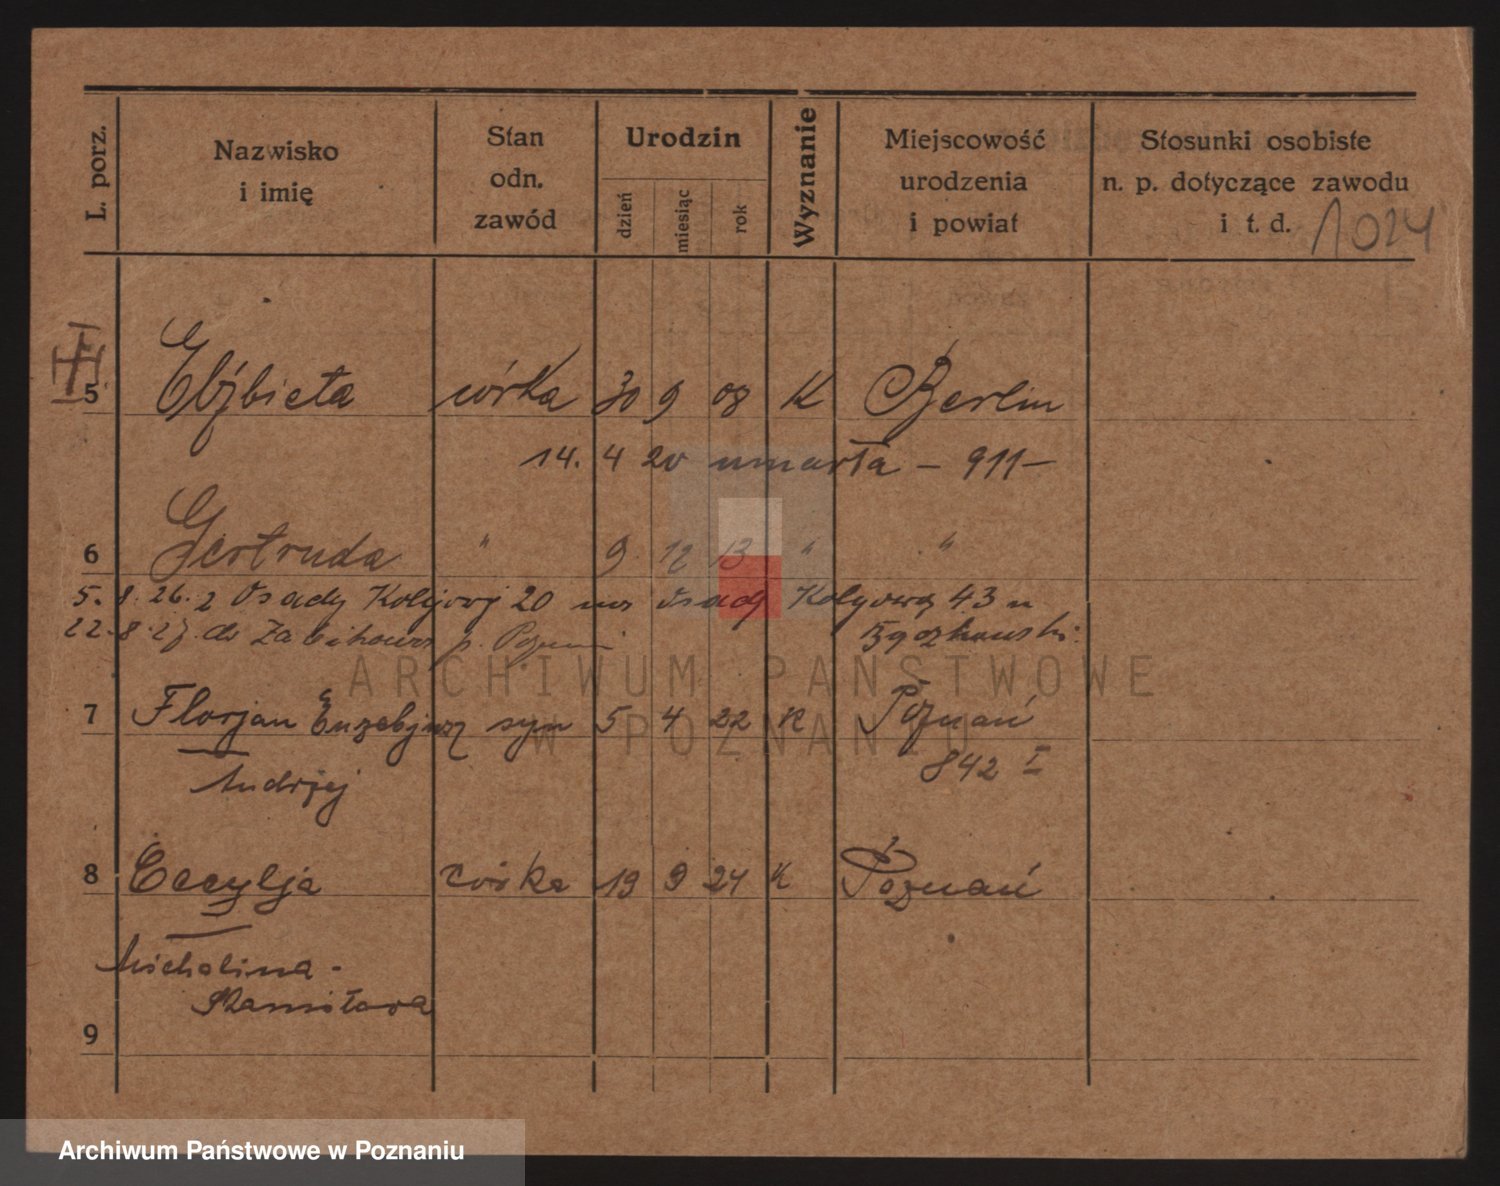 L. porz. Nazwisko i imię Stan odn. zawód Urodzin dzień miesiąc rok Wyznanie Miejscowość urodzenia i powiat Stosunki osobiste n. p. dotyczące zawodu i t. d. 1024
5 Elżbieta córka 30 9 08 K Berlin
14. 4 20 umarła – 911 –
6 Gertruda " 9 12 13 " "
5. 8. 26. z Osady Kolejowej 20 na Osady Kolejową 43 u
22. 8. 27. do Żabikowa p.
7 Florjan Euzebjusz syn 5 4 22 K Poznań
Andrzej 842 I
8 Cecylja córka 19 9 24 K Poznań
Michalina -
Stanisława
9
ARCHIWUM PAŃSTWOWE
W POZNANIU
Archiwum Państwowe w Poznaniu